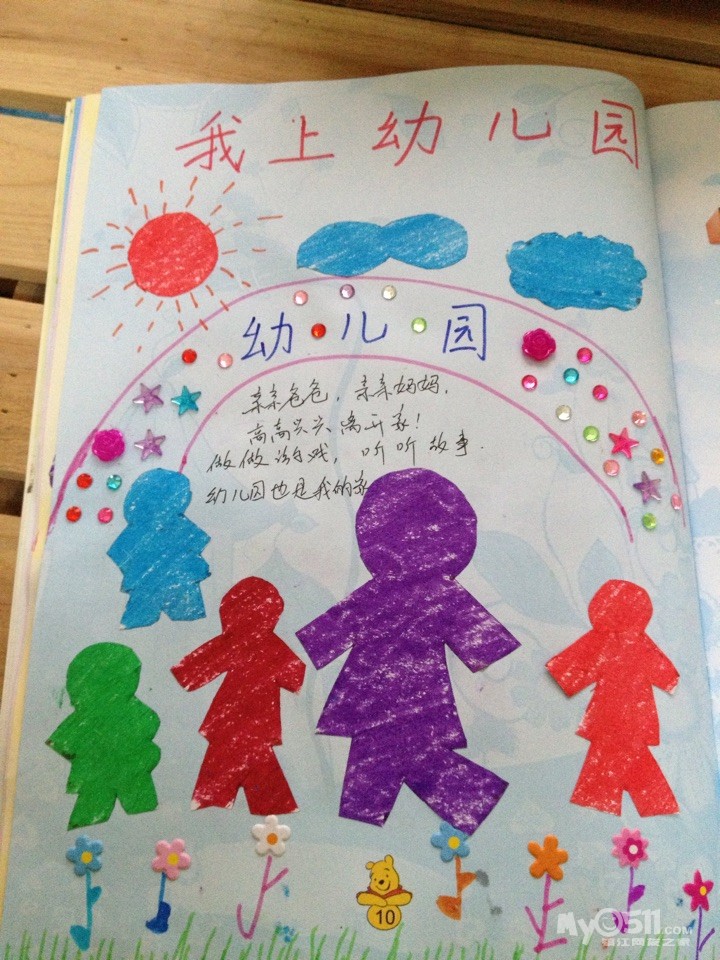 我上幼儿园
幼儿园
亲亲爸爸，亲亲妈妈，
高高兴兴离开家！
做做游戏，听听故事．
幼儿园也是我的家
10
My0511.COM
镇江网友之家